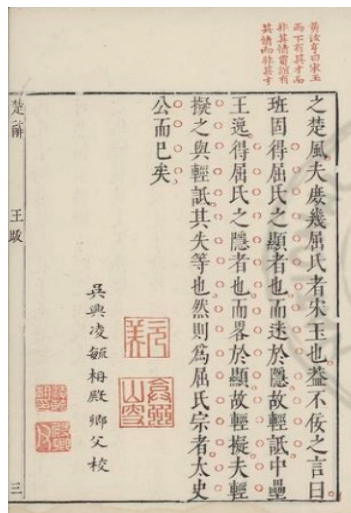 黃汝亨曰宋玉
而下有其才而
非其情賈誼有
其情而非其才
之楚風夫庶幾屈氏者宋玉也蓋不佞之言曰
班固得屈氏之顯者也而迷於隱故輕詆中壘
王逸得屈氏之隱者也而畧於顯故輕擬夫輕
擬之與輕詆其失等也然則爲屈氏宗者太史
公而已矣
吳興凌毓枬殿卿父校
楚辭 王跋 三